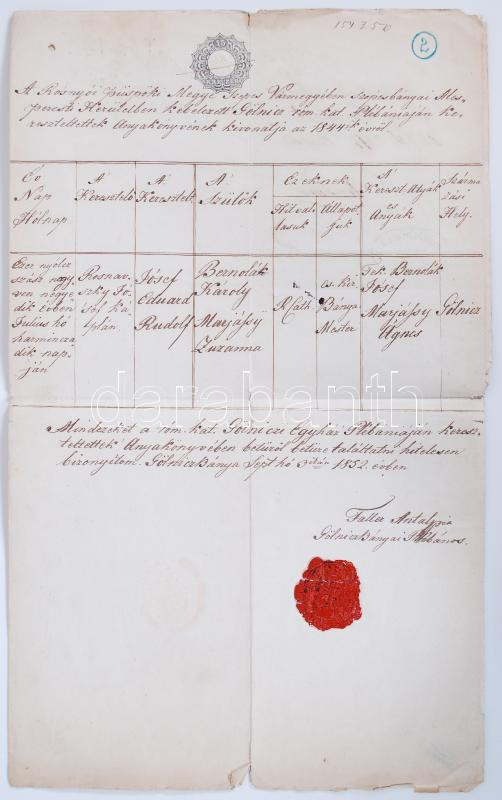 154350
2
A Rosnyói Püspöki Megye Szepes Vármegyében Szepesbányai Als-
peresti Kerületben kebelezett Gölnicz róm. kat. Plébániaján ke-
reszteltettek Anyakönyvének kivonatja az 1844ik évről.
Év
Nap
Hólnap
A'
Keresztelő
A'
Keresztelt
A'
Szülők
Ezeknek
Hitval-
lásuk
Állapot-
juk
A'
Kereszt-Atyák
és
Anyák
Szárma
zási
Hely.
Ezer nyolcz
száz negy-
ven negye-
dik évben
Julius hó
harmincza
dik nap-
ján
Rosnav-
szky Jo-
sef ká-
plán.
Jósef
Eduard
Rudolf
Bernolák
Károly
Marjássy
Zuzanna
R. Cath.
cs. kir.
Bánya
Mester
Tek. Bernolák
Josef
Marjássy
Agnes
Gölnicz
Mindezeket a róm. kat. Gölniczi Egyház Plébániaján keresz-
teltettek Anyakönyvében betüről betüre találtatni hitelesen
bizonyitom. GölniczBánya Sept. hó 3ikán 1852. évben
Faller Antal
GölniczBányai Plébános.
darabanth